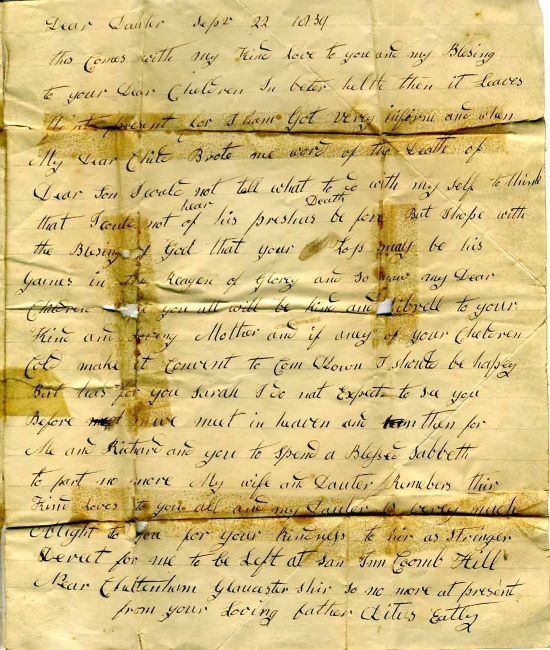 Dear Dauter Sepr 22 1839
this Comes with my Kind Love to you and my Blesing
to your Dear Children In beter helth then it Leaves
Me at present for I ham Got verey infirm and when
My Dear Child Brote me word of the Death of
Dear Son I Could not tell what to do with my self to think
that I Could not hear of his preshus Death be fore But I hope with
the Blesing of God that your Loss may be his
Gaines in the of Glorey and so now my Dear
Children I you all will be Kind and Librell to your
Kind and Loving Mother and if aney of your Cheldren
Cold make it Convent to Com Down I should be happey
But has for you Sarah I do not Expect to see you
Before we meet in heaven and then for
Me and Richard and you to Spend a Blessed Sabbeth
to part no more My wife and Dauter Remebers thir
Kind Loves to you all and my Dauter is verey much
Oblight to you for your Kindness to her as stringer
Derect for me to be Left at San Inn Coomb Hill
Near Cheltenham Gloucester shir so no more at present
from your Loving father Eatty